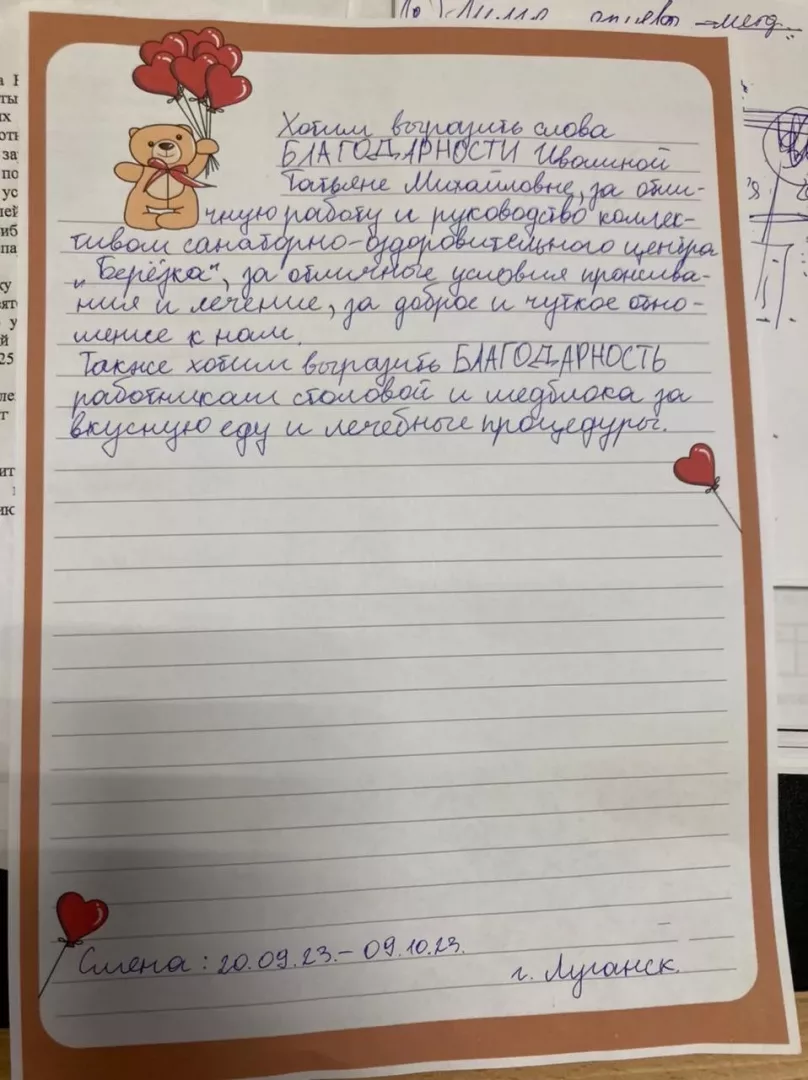 Хотим выразить слова
БЛАГОДАРНОСТИ Ивашиной
Татьяне Михайловне, за отли-
чную работу и руководство коллек-
тивом санаторно-оздоровительного центра
„Берёзка", за отличные условия прожива-
ния и лечение, за доброе и чуткое отно-
шение к нам.
Также хотим выразить БЛАГОДАРНОСТЬ
работникам столовой и медблока за
вкусную еду и лечебные процедуры.
Смена: 20.09.23.– 09.10.23.
г. Луганск.